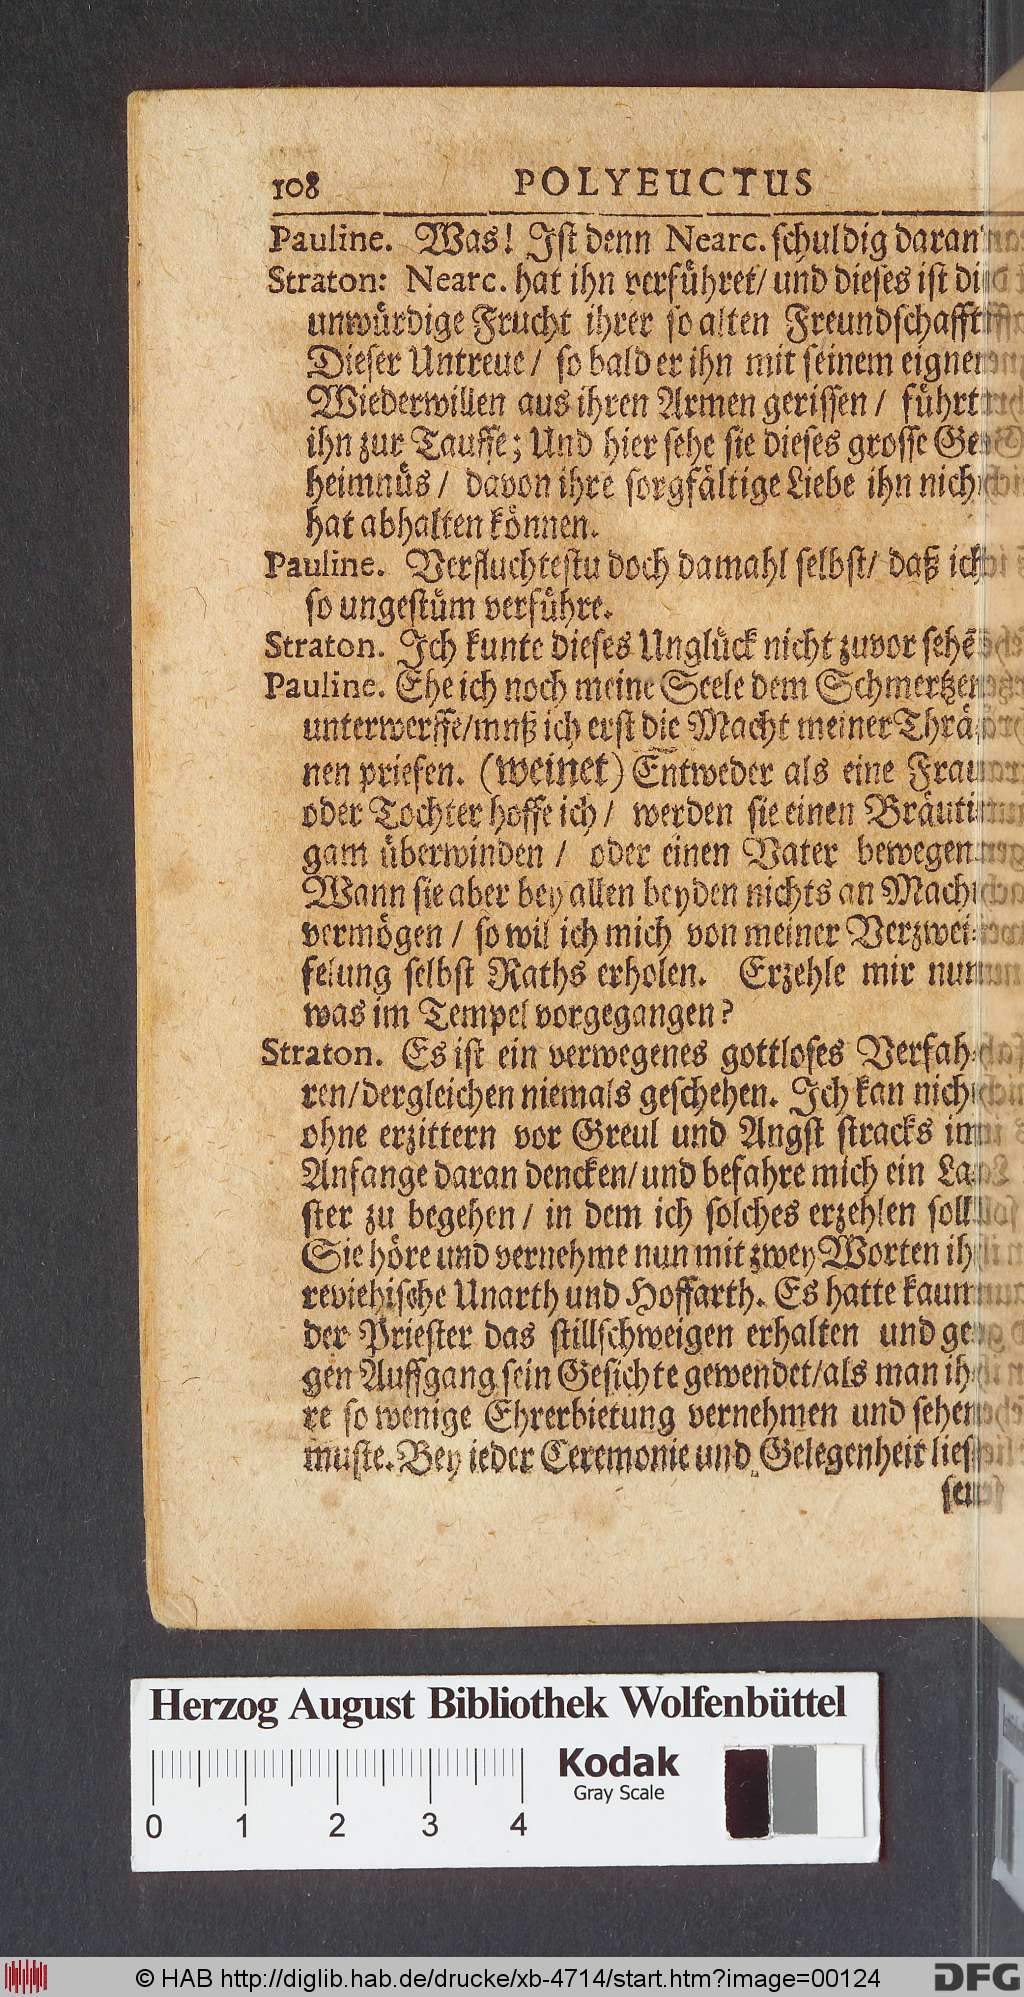 108 POLYEUCTUS
Pauline. Was! Ist denn Nearc. schuldig daran
Straton: Nearc. hat ihn verführet/ und dieses ist die
unwürdige Frucht ihrer so alten Freundschafft
Dieser Untreue / so bald er ihn mit seinem eignen
Wiederwillen aus ihren Armen gerissen / führt
ihn zur Tauffe; Und hier sehe sie dieses grosse Ge-
heimnüs / davon ihre sorgfältige Liebe ihn nicht
hat abhalten können.
Pauline. Verfluchtestu doch damahl selbst/ daß ich
so ungestüm verführe.
Straton. Ich kunte dieses Unglück nicht zuvor sehē
Pauline. Ehe ich noch meine Seele dem Schmertzen
unterwerffe/mnß ich erst die Macht meiner Thrä-
nen priefen. (weinet) Entweder als eine Frau
oder Tochter hoffe ich / werden sie einen Bräuti-
gam überwinden / oder einen Vater bewegen
Wann sie aber bey allen beyden nichts an Macht
vermögen / so wil ich mich von meiner Verzwei-
felung selbst Raths erholen. Erzehle mir nun
was im Tempel vorgegangen?
Straton. Es ist ein verwegenes gottloses Verfah-
ren/dergleichen niemals geschehen. Ich kan nicht
ohne erzittern vor Greul und Angst stracks im
Anfange daran dencken/und befahre mich ein La-
ster zu begehen / in dem ich solches erzehlen soll
Sie höre und vernehme nun mit zwey Worten ih-
reviehische Unarth und Hoffarth. Es hatte kaum
der Priester das stillschweigen erhalten und ge-
gen Auffgang sein Gesichte gewendet/als man ih-
re so wenige Ehrerbietung vernehmen und sehen
muste. Bey ieder Ceremonie und Gelegenheit lies
Herzog August Bibliothek Wolfenbüttel
Kodak
Gray Scale
0 1 2 3 4
© HAB http://diglib.hab.de/drucke/xb-4714/start.htm?image=00124
DFG